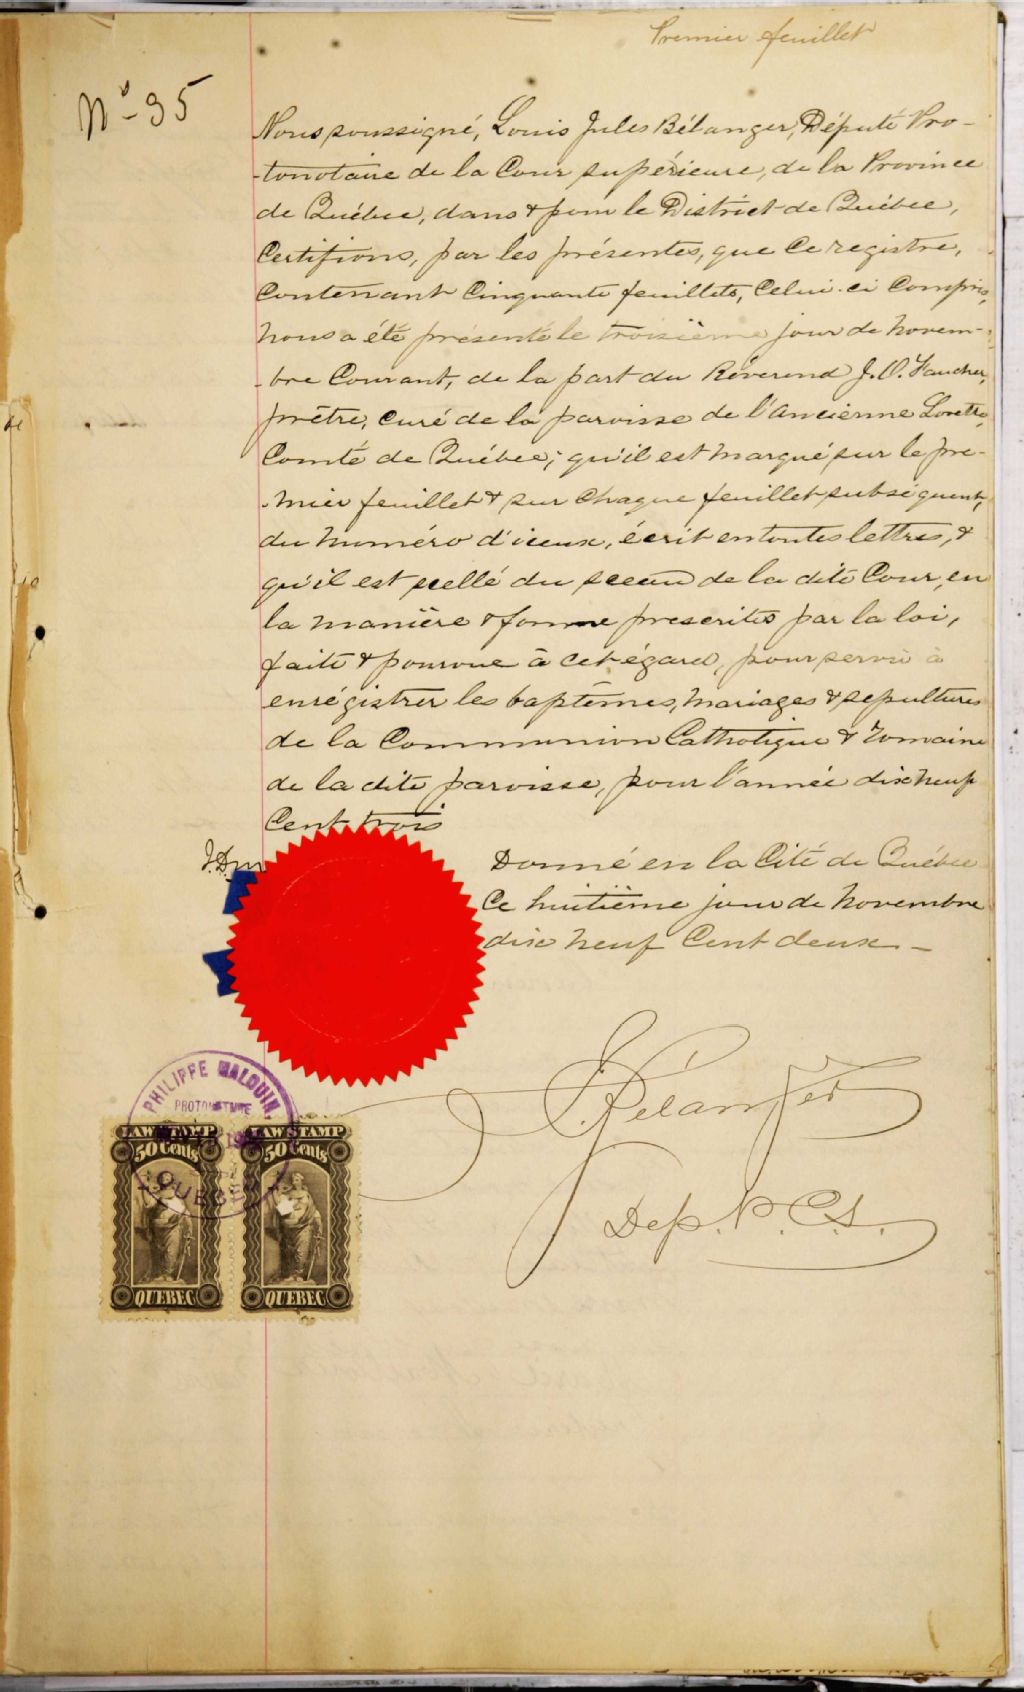 Premier feuillet
No 35
Nous soussigné, Louis Jules Bélanger, Député Pro-
-tonotaire de la Cour supérieure, de la Province
de Québec, dans & pour le District de Québec,
Certifions, par les présentes, que ce registre,
Contenant Cinquante feuillets, Celui-ci Compris,
nous a été présenté le troisième jour de novem-
-bre Courant, de la part du Révérend J. O. Faucher,
prêtre, curé de la paroisse de l'Ancienne Lorette,
Comté de Québec; qu'il est marqué sur le pre-
-mier feuillet & sur chaque feuillet subséquent,
du numéro d'iceux, écrit en toutes lettres, &
qu'il est scellé du sceau de la dite Cour, en
la manière & forme prescrites par la loi,
faite & pourvue à cet égard, pour servir à
enrégistrer les baptêmes, mariages & sépultures
de la Communion Catholique & romaine
de la dite paroisse, pour l'année dix neuf
Cent trois
Donné en la Cité de Québec
Ce huitième jour de novembre
dix neuf Cent deux —
Bélanger
Dep. P. C. S.
PHILIPPE MALOUIN,
PROTONOTAIRE
QUEBEC
LAW STAMP LAW STAMP
50 Cents 50 Cents
QUEBEC QUEBEC